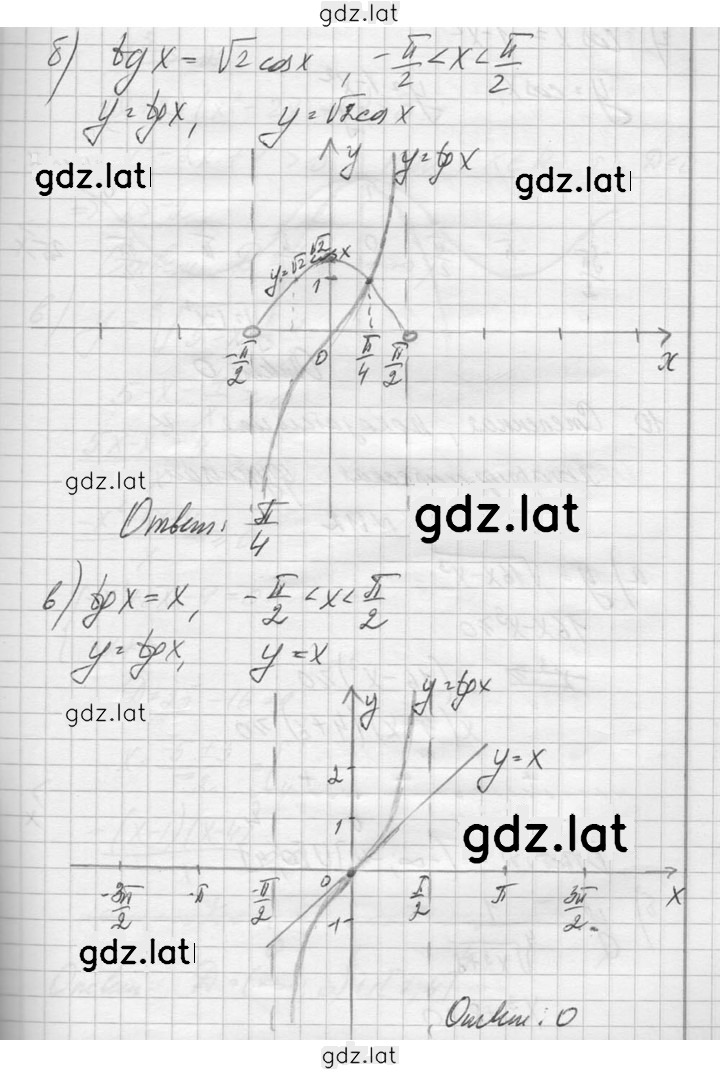 gdz.lat
б) tg x = √2 cos x, -π/2 < x < π/2
y = tg x, y = √2 cos x
gdz.lat
y
y = tg x
gdz.lat
√2
y = √2 cos x
1
-π/2
0
π/4
π/2
x
gdz.lat
Ответ: π/4
gdz.lat
в) tg x = x, -π/2 < x < π/2
y = tg x, y = x
gdz.lat
y
y = tg x
y = x
2
1
gdz.lat
-3π/2
-π
-π/2
0
π/2
π
3π/2
x
-1
gdz.lat
Ответ: 0
gdz.lat